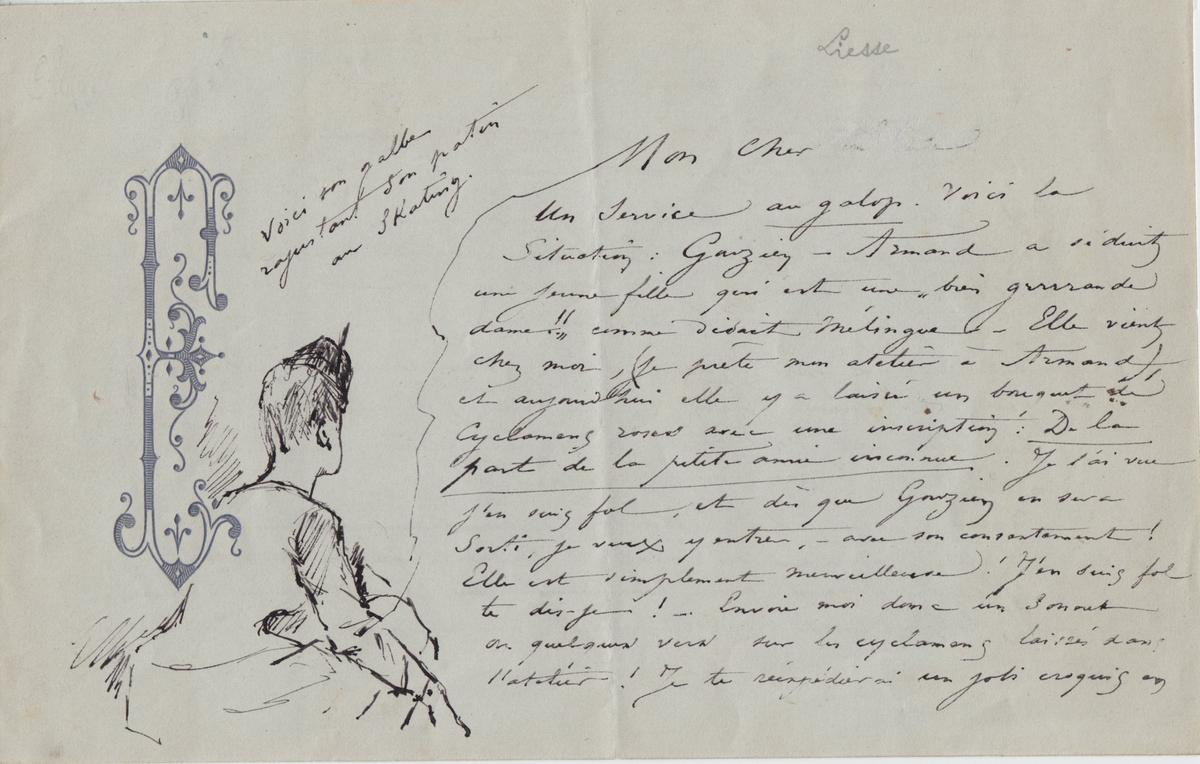 Liesse
Voici son galbe
rajustant son patin
au Skating.
Mon Cher
Un Service au galop. Voici la
Situation : Gouzien – Armand a séduit
une jeune fille qui est une „bien grrrrande
dame!!„ comme disait Mélingue – Elle vient
chez moi, (je prête mon atelier à Armand)
et aujourd'hui elle y a laissé un bouquet de
Cyclamens roses avec une inscription : De la
part de la petite amie inconnue. Je l'ai vue
j'en suis fol, et dès que Gouzien en sera
Sorti, je veux y entrer, – avec son consentement !
Elle est simplement merveilleuse ! J'en suis fol
te dis-je ! – Envoie moi donc un Sonnet
ou quelques vers sur les cyclamens laissés dans
l'atelier ! Je te réexpédierai un joli croquis en